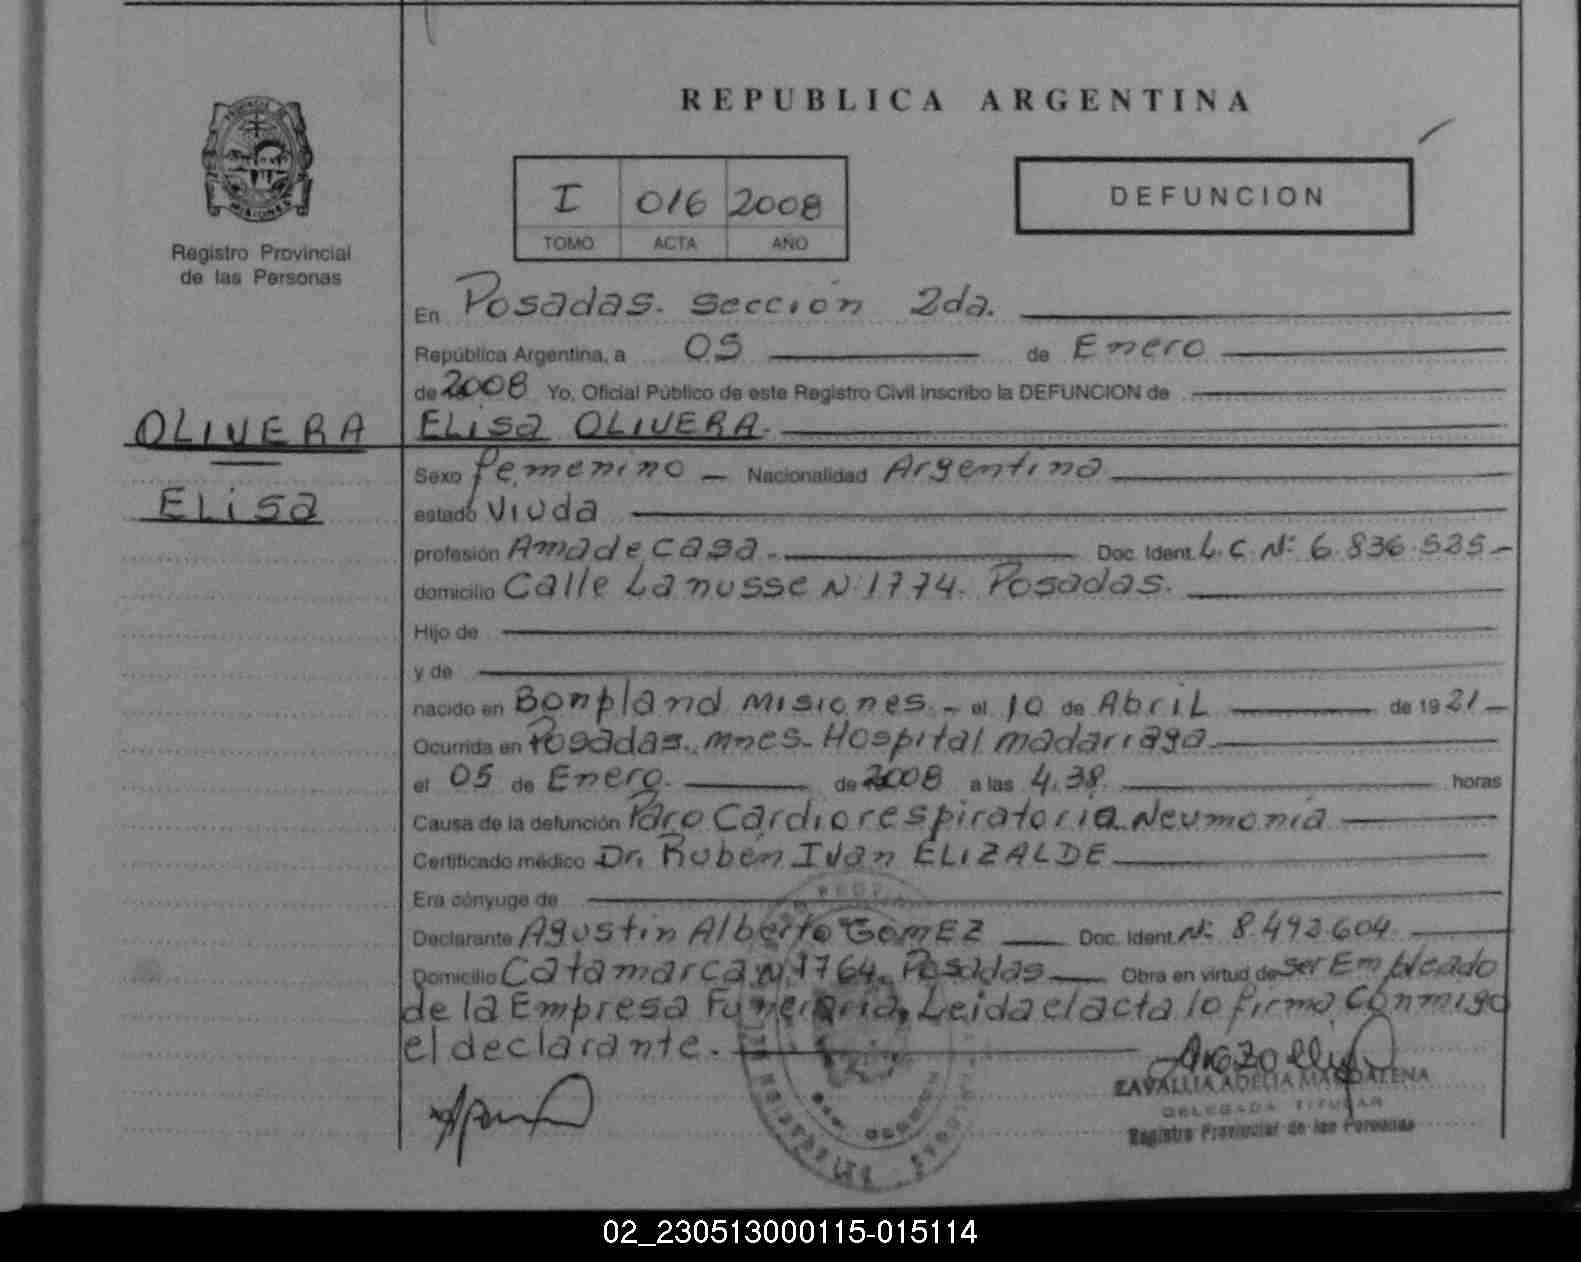 REPUBLICA ARGENTINA
I 016 2008
TOMO ACTA AÑO
DEFUNCION
MISIONES
Registro Provincial
de las Personas
En Posadas. sección 2da.
República Argentina, a 05 de Enero
de 2008 Yo, Oficial Público de este Registro Civil inscribo la DEFUNCION de
OLIVERA
ELisa OLIVERA.
ELisa
Sexo femenino - Nacionalidad Argentina
estado Viuda
profesión Ama de casa - Doc. Ident. L.C. Nº 6.836.525-
domicilio Calle Lanusse Nº 1774. Posadas.
Hijo de
y de
nacido en Bonpland Misiones - el 10 de AbriL de 1921
Ocurrida en Posadas. mnes. Hospital madariaga
el 05 de Enero. de 2008 a las 4.38. horas
Causa de la defunción Paro Cardiorespiratorio. Neumonia
Certificado médico Dr. Rubén Ivan ELIZALDE
Era cónyuge de
Declarante Agustin Alberto GomEZ Doc. Ident. Nº 8.492.604.
Domicilio Catamarca Nº 1764. Posadas Obra en virtud de ser Empleado
de la Empresa Funeraria. Leida el acta lo firma Conmigo
el declarante.
ZAVALLIA ADELIA MAGDALENA
DELEGADA TITULAR
Registro Provincial de las Personas
02_230513000115-015114